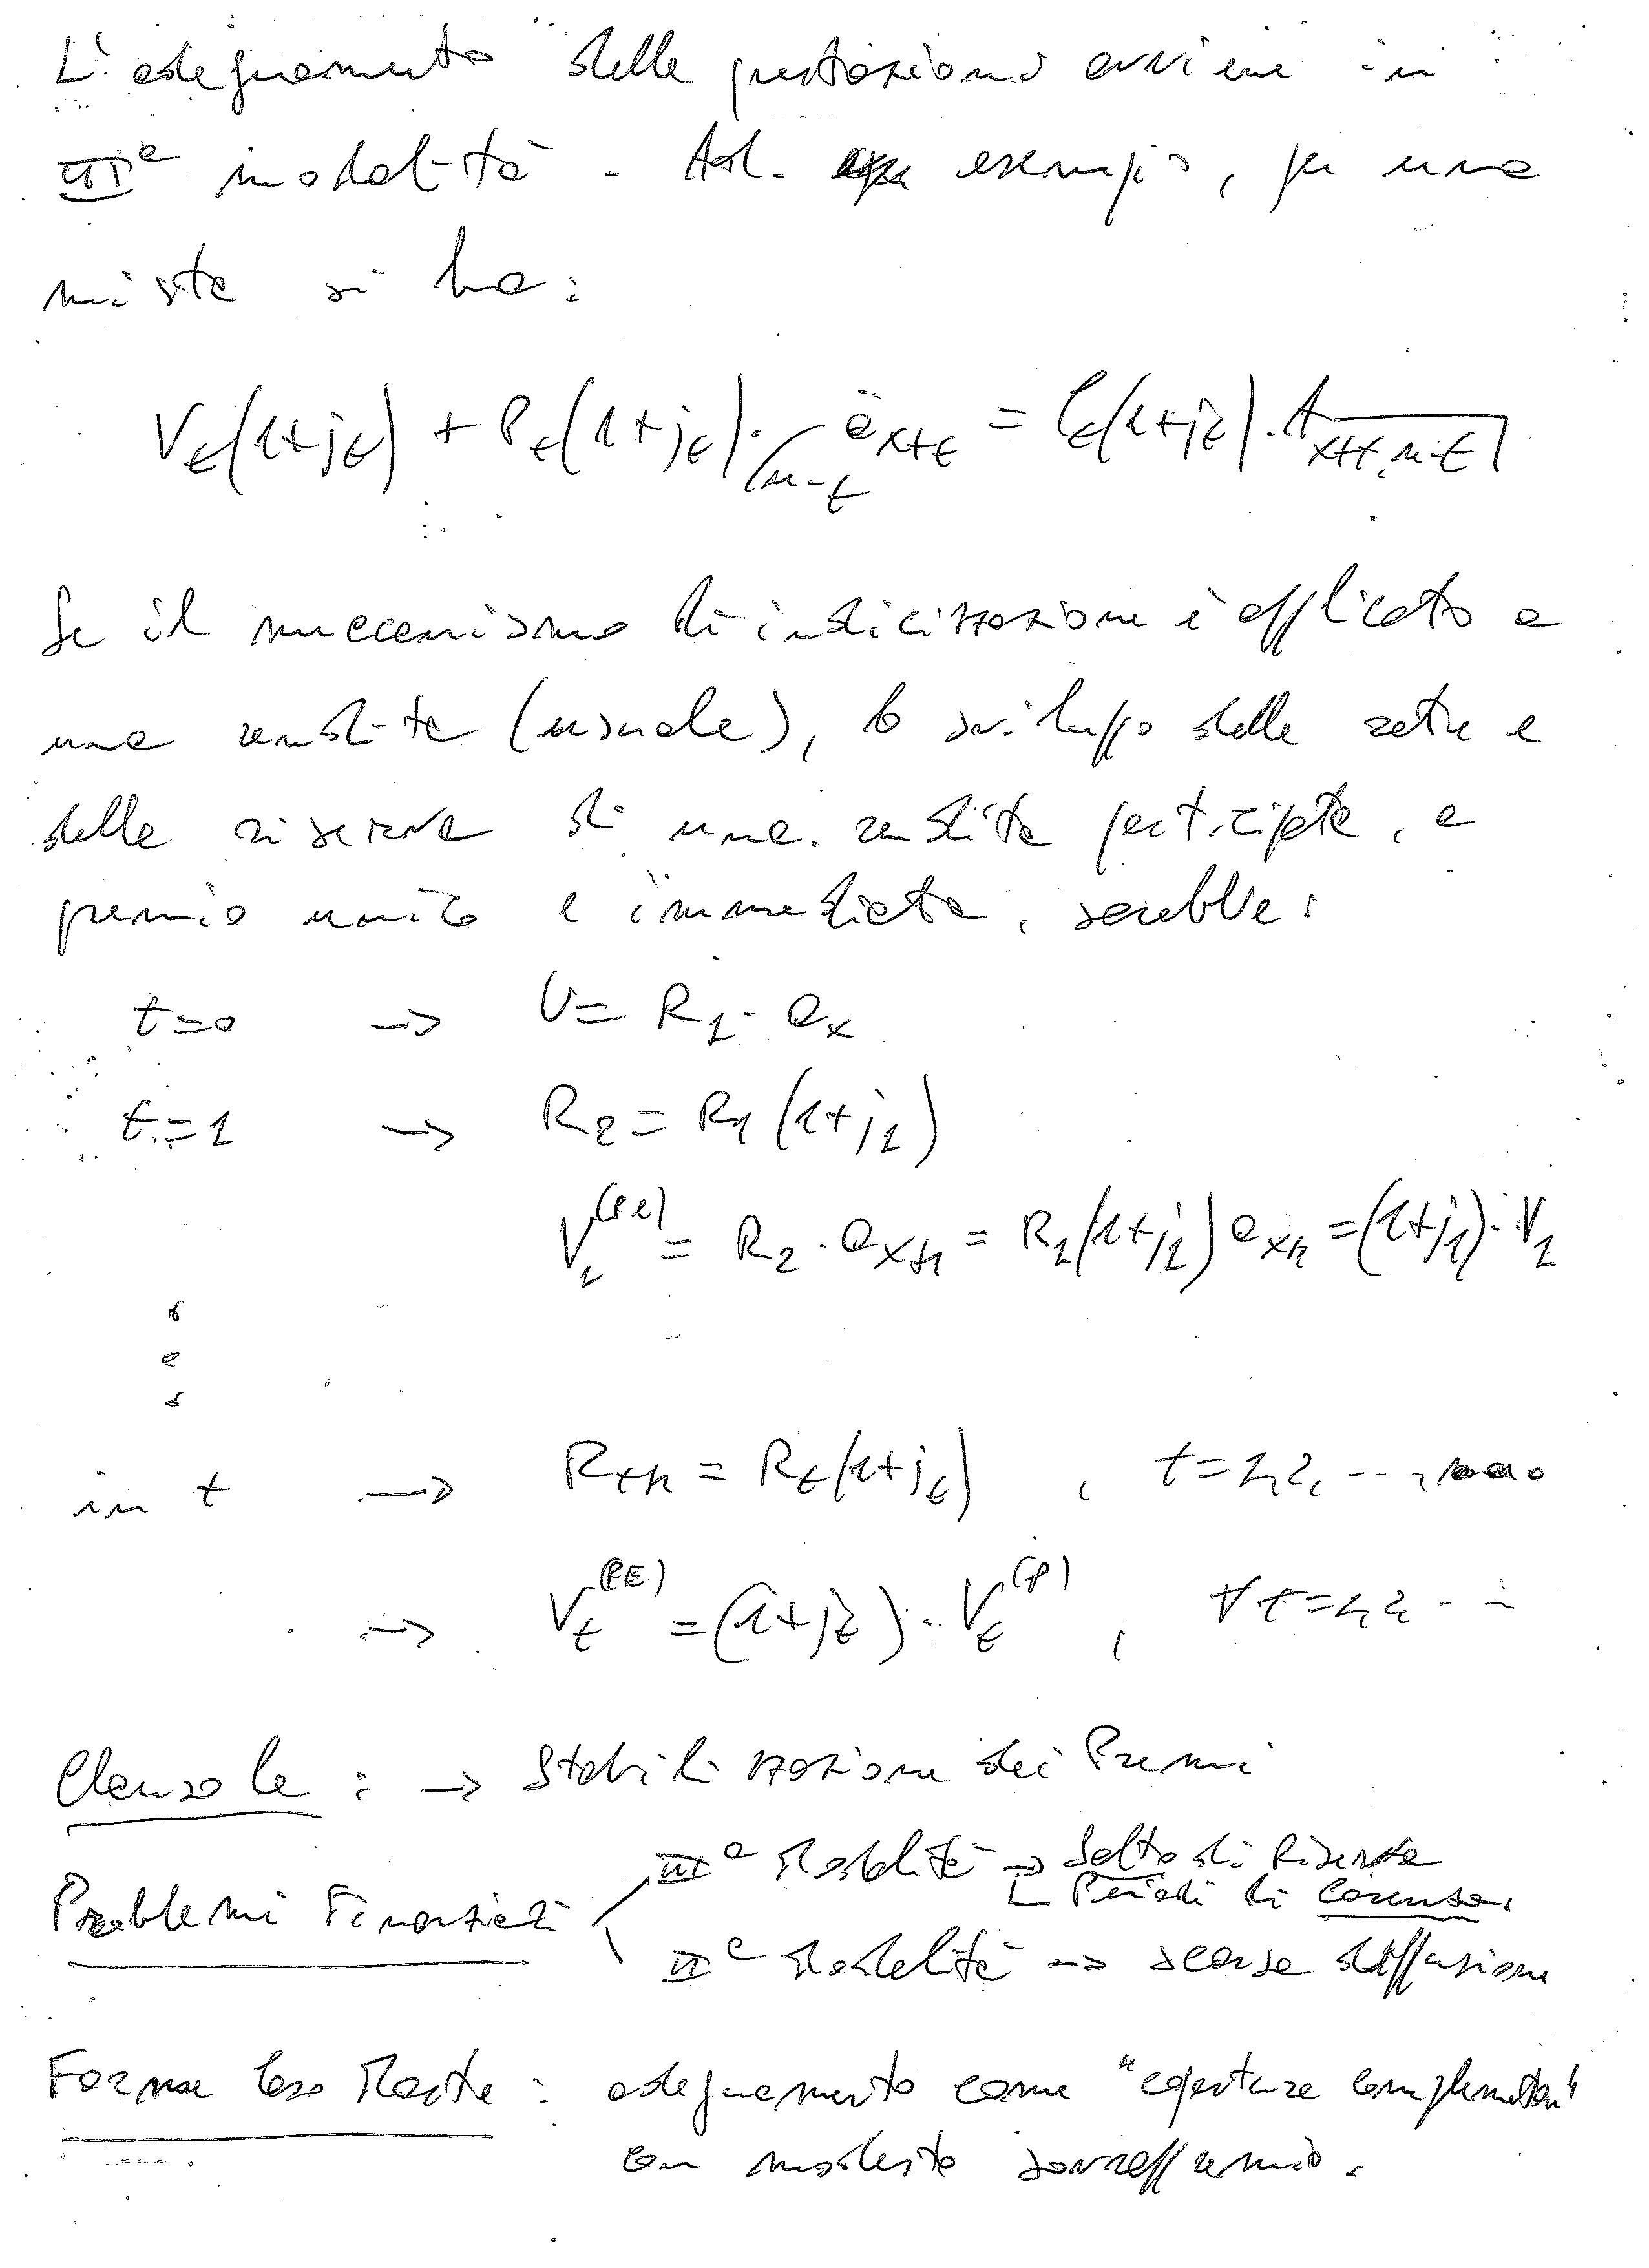 L'adeguamento delle prestazioni avviene in
IIIª modalità. Ad. esempio, per una
mista si ha:
V_t(1+j_t) + P_t(1+j_t)·/n-t ä_x+t = C_t(1+j_t)·A_x+t,n-t⌉
Se il meccanismo di indicizzazione è applicato a
una rendita (usuale), lo sviluppo delle rate e
delle riserve di una rendita partecipata, a
premio unico e immediata, sarebbe:
t=0 → U = R_1·a_x
t=1 → R_2 = R_1(1+j_1)
V_1^(PE) = R_2·a_x+1 = R_1(1+j_1) a_x+1 = (1+j_1)·V_1
in t → R_t+1 = R_t(1+j_t) , t=1,2, ...
→ V_t^(PE) = (1+j_t)·V_t^(P) , ∀t=1,2 ...
Clausole : → Stabilizzazione dei Premi
IIIª Modalità → Salto di Riserva
Problemi Finanziari ∟ Periodi di Carenza.
IIª Modalità → scarsa diffusione
Forme Caso Morte : adeguamento come "coperture complementari"
con modesto sovrappremio.